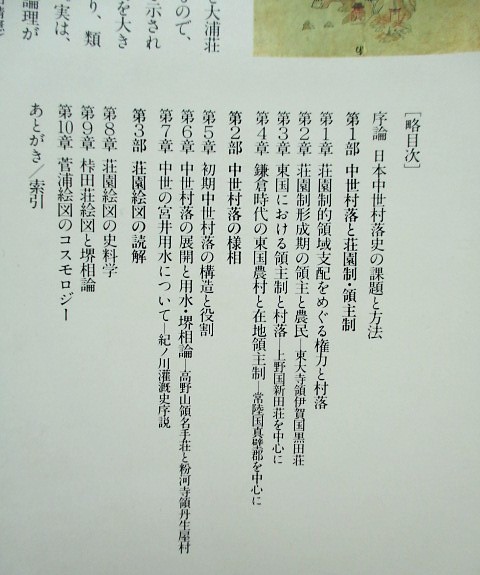 と大浦荘
ものので、
示され
を大き
り、類
実は、
論理が
［略目次］
序論　日本中世村落史の課題と方法
第1部　中世村落と荘園制・領主制
第1章　荘園制的領域支配をめぐる権力と村落
第2章　荘園制形成期の領主と農民―東大寺領伊賀国黒田荘
第3章　東国における領主制と村落―上野国新田荘を中心に
第4章　鎌倉時代の東国農村と在地領主制―常陸国真壁郡を中心に
第2部　中世村落の様相
第5章　初期中世村落の構造と役割
第6章　中世村落の展開と用水・堺相論―高野山領名手荘と粉河寺領丹生屋村
第7章　中世の宮井用水について―紀ノ川灌漑史序説
第3部　荘園絵図の読解
第8章　荘園絵図の史料学
第9章　桛田荘絵図と堺相論
第10章　菅浦絵図のコスモロジー
あとがき／索引